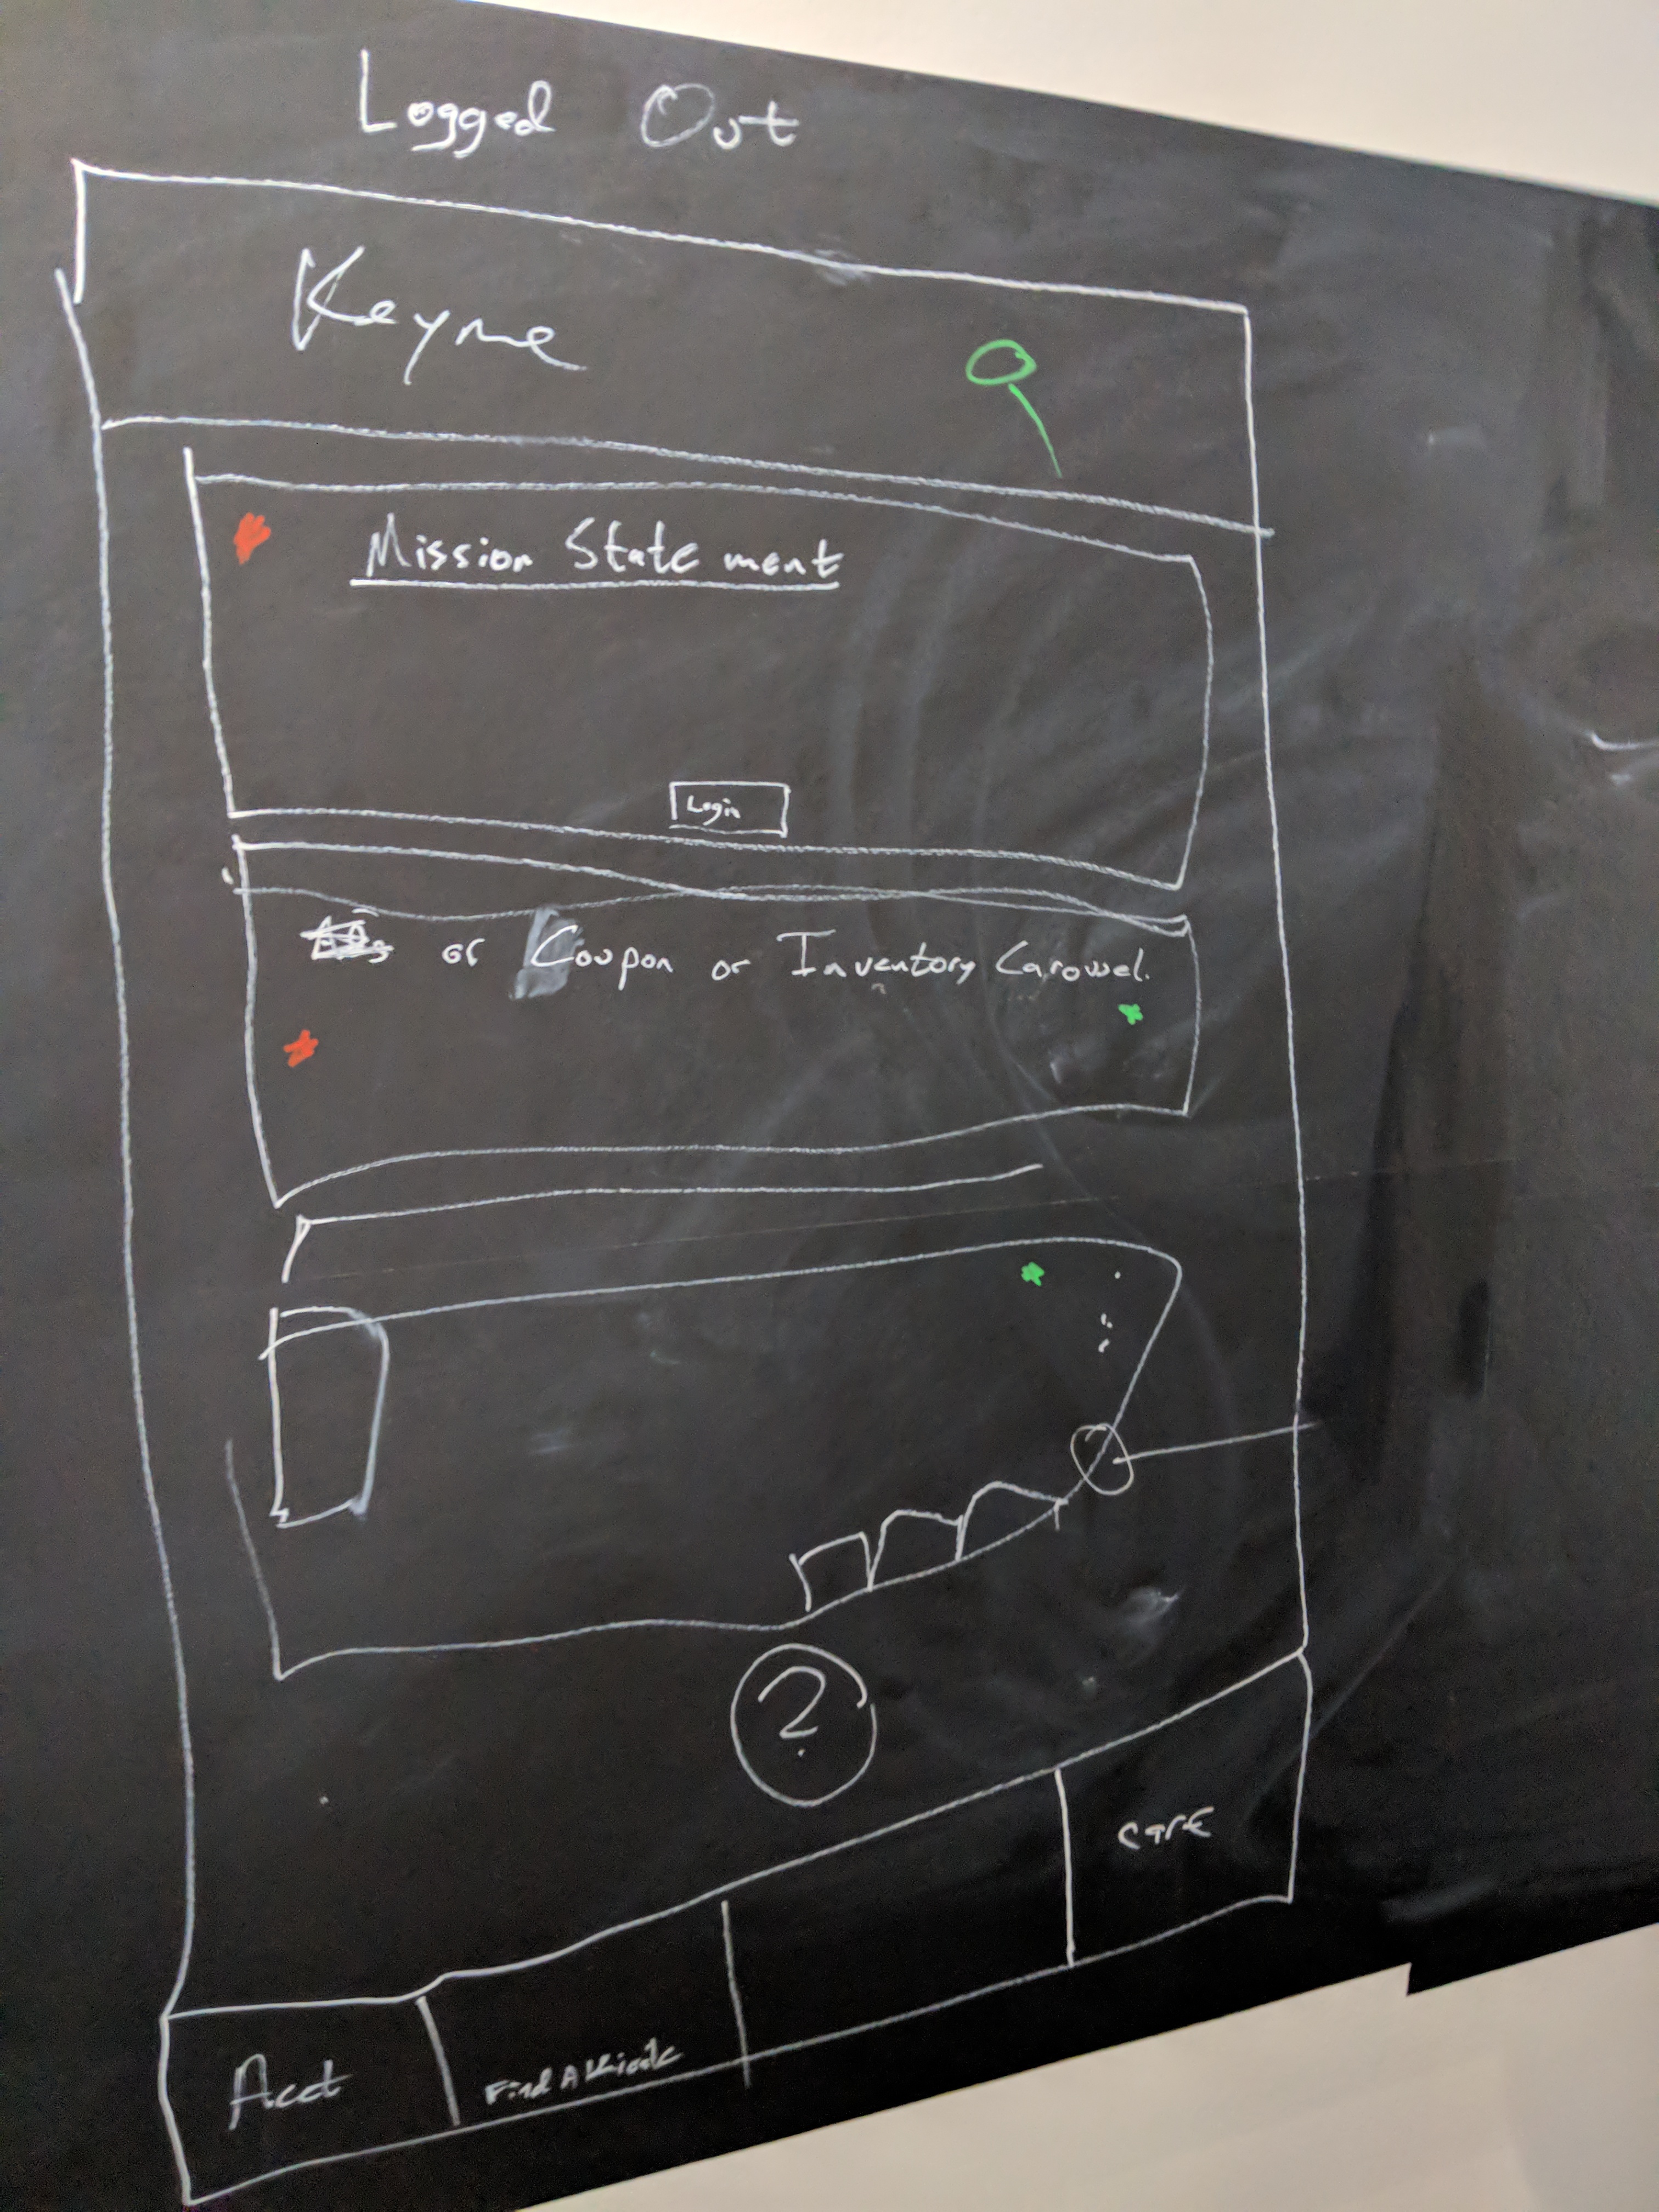 Logged Out
Keyme
Mission Statement
Login
or Coupon or Inventory Carousel.
?
Find A Kiosk
Acct